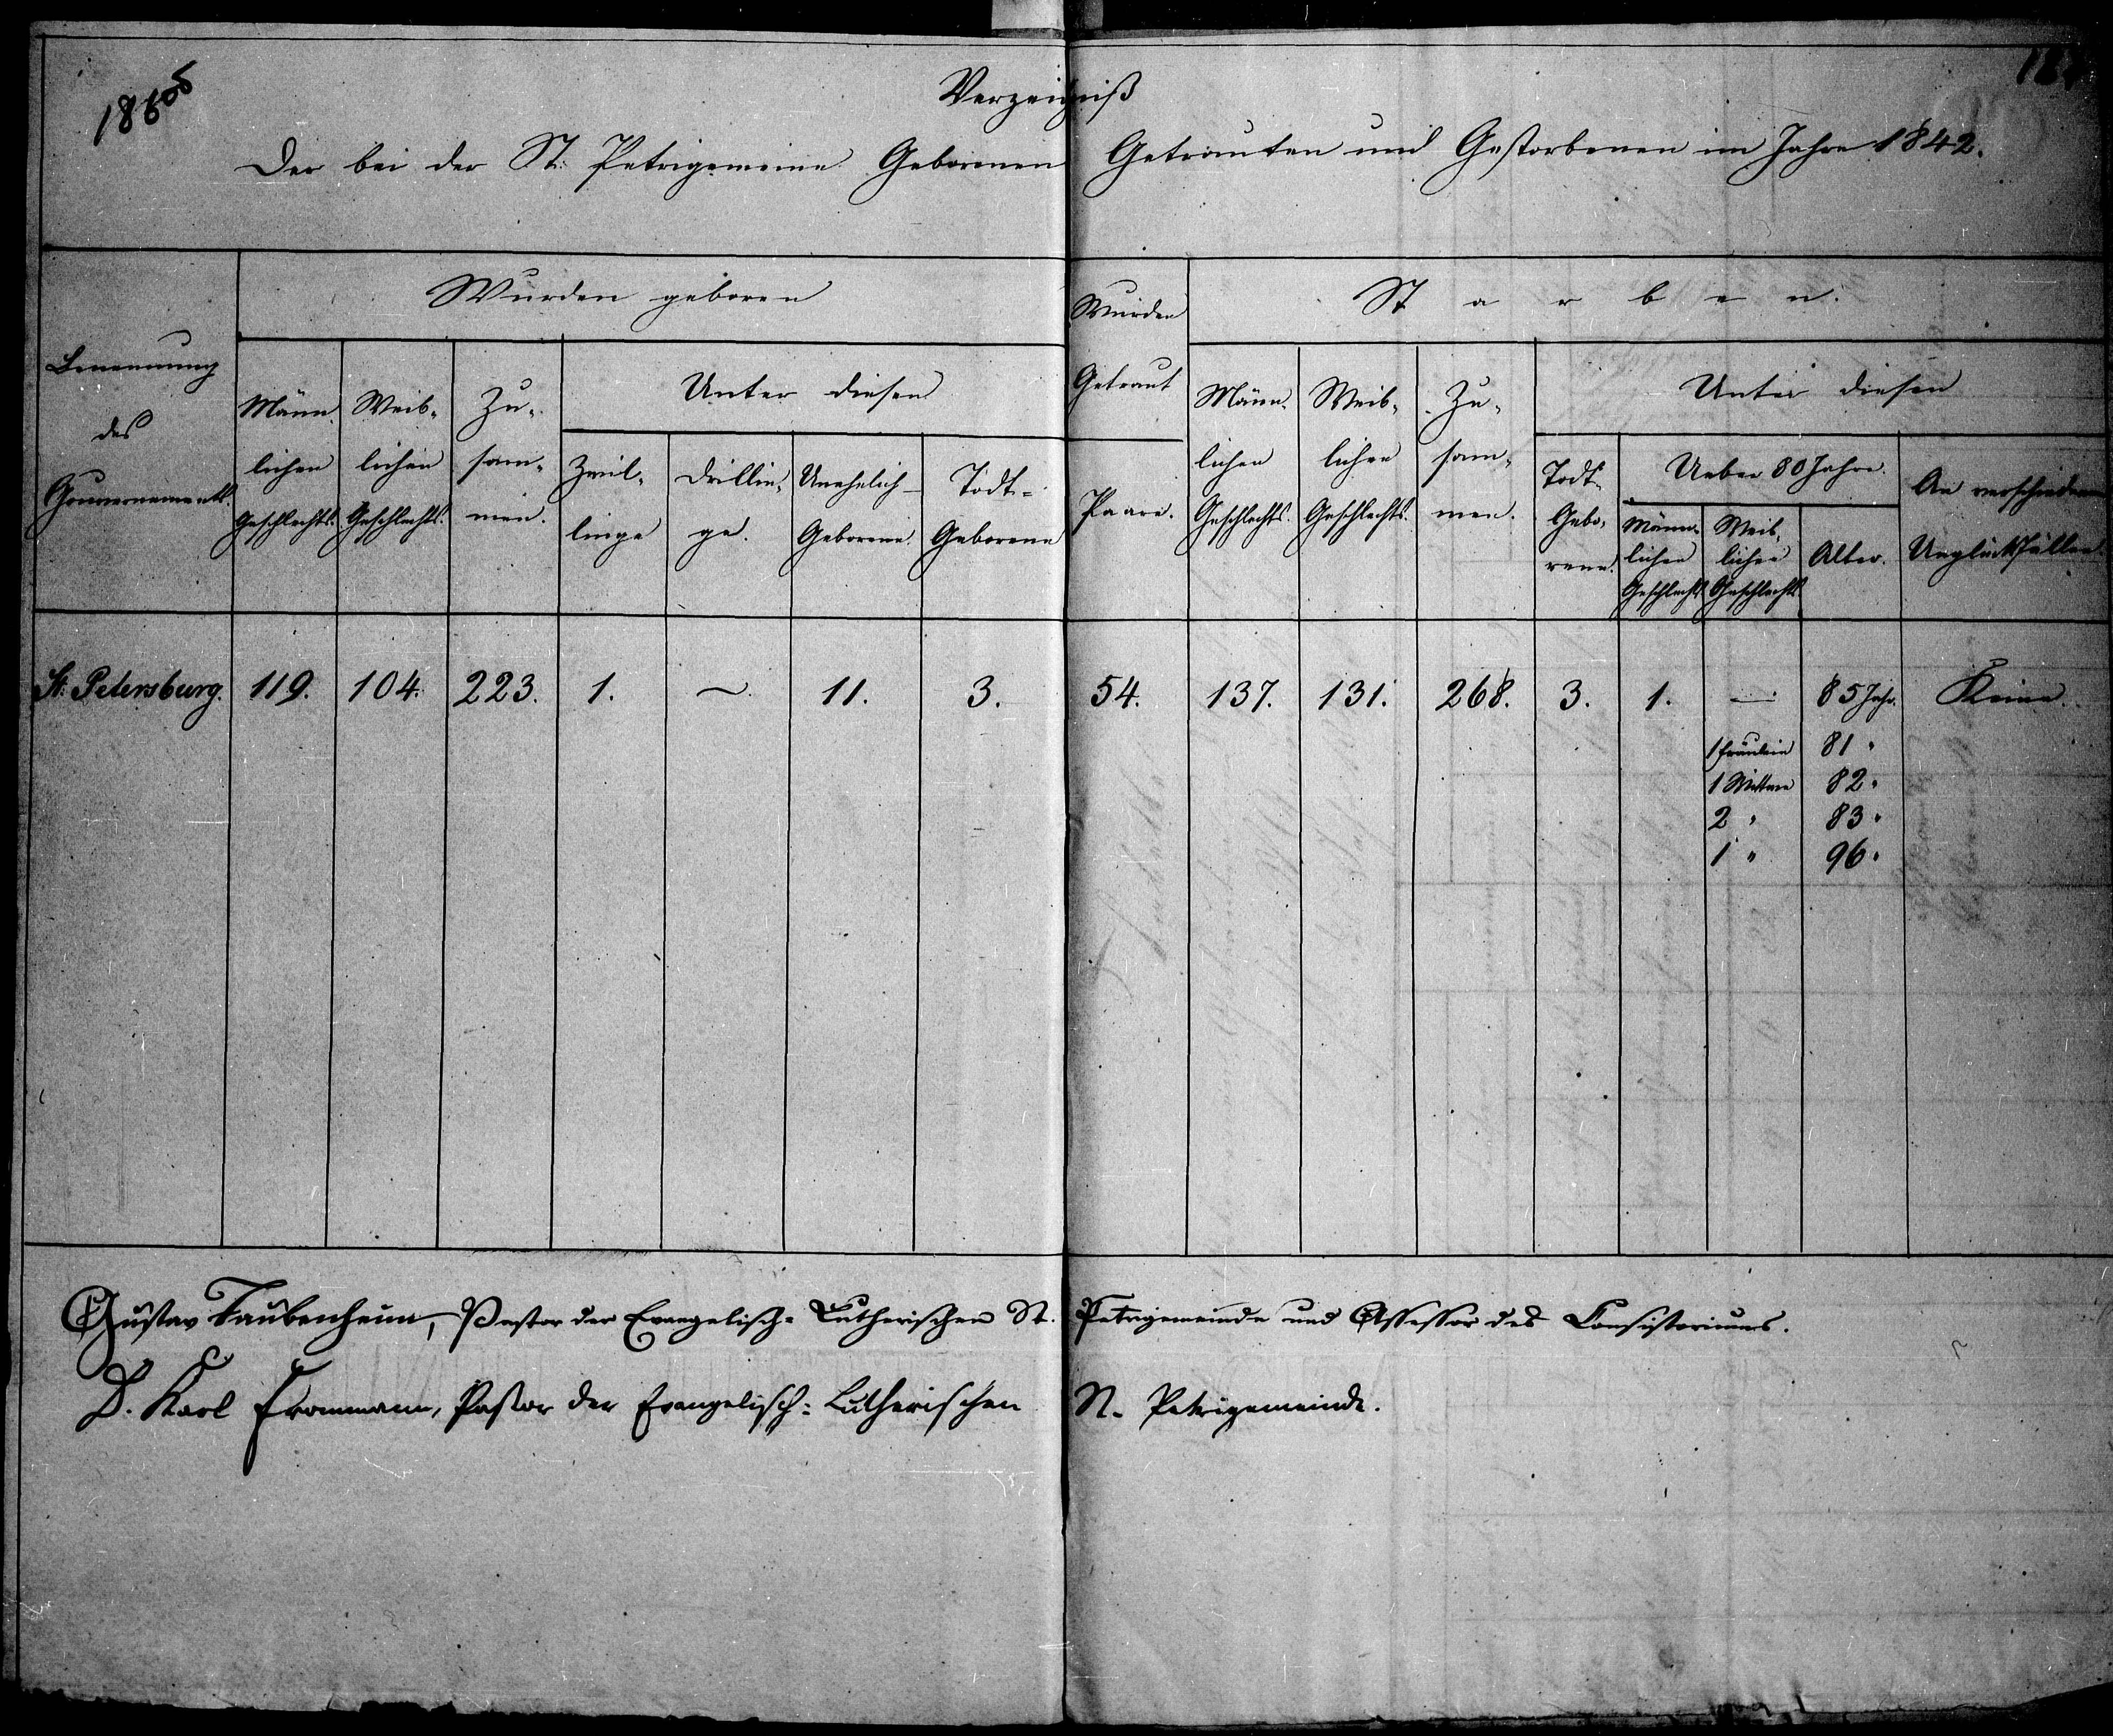 Verzeichniß
Der bei der St. Petrigemeine Geborenen Getrauten und Gestorbenen im Jahre 1842.
Benennung des Gouvernements.
Wurden geboren
Männ-lichen Geschlechts.
Weib-lichen Geschlechts.
Zu-sam-men.
Unter diesen
Zwil-linge
Drillin-ge.
Unehelich-Geborene.
Todt-Geborene
Wurden Getraut
Paare.
Starben.
Männ-lichen Geschlechts.
Weib-lichen Geschlechts.
Zu-sam-men.
Unter diesen
Todt-Gebo-rene.
Ueber 80 Jahre.
Männ-lichen Geschlechts
Weib-lichen Geschlechts
Alter.
An verschiedenen Unglücksfällen.
St. Petersburg. 119. 104. 223. 1. — 11. 3. 54. 137. 131. 268. 3. 1. — 85 Jahr. Keine.
1 Fräulein 81 "
1 Wittwe 82 "
2 " 83 "
1 " 96 "
Gustav Taubenheim, Pastor der Evangelisch-Lutherischen St. Petrigemeinde und Assessor des Consistoriums.
D. Karl Frommann, Pastor der Evangelisch-Lutherischen St. Petrigemeinde.